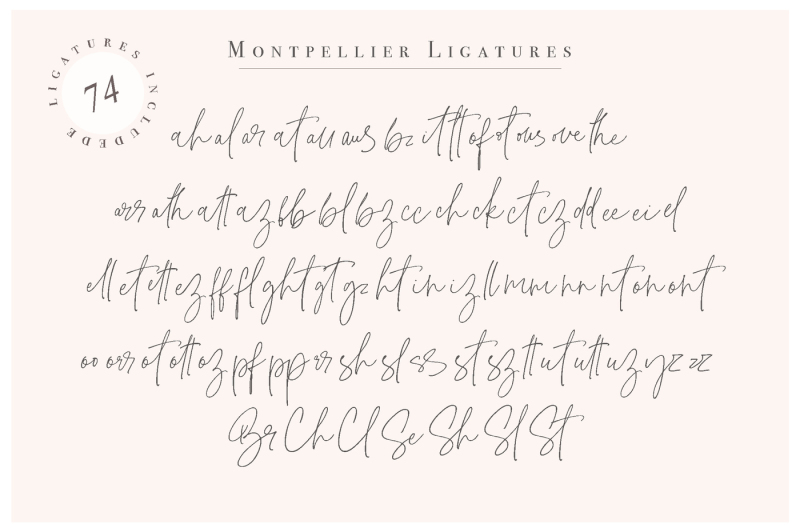 MONTPELLIER LIGATURES
LIGATURES INCLUDEDE
74
ah al ar at au aus bz it tt of ot ous ove the
arr ath att az bb bl bz cc ch ck ct cz dd ee ei el
ell et ett ez ff fl ght gt gz ht in iz ll mm nn nt on ont
oo orr ot ott oz pf pp rr sh sl ss st sz tt ut utt uz yz zz
Br Ch Cl Se Sh Sl St